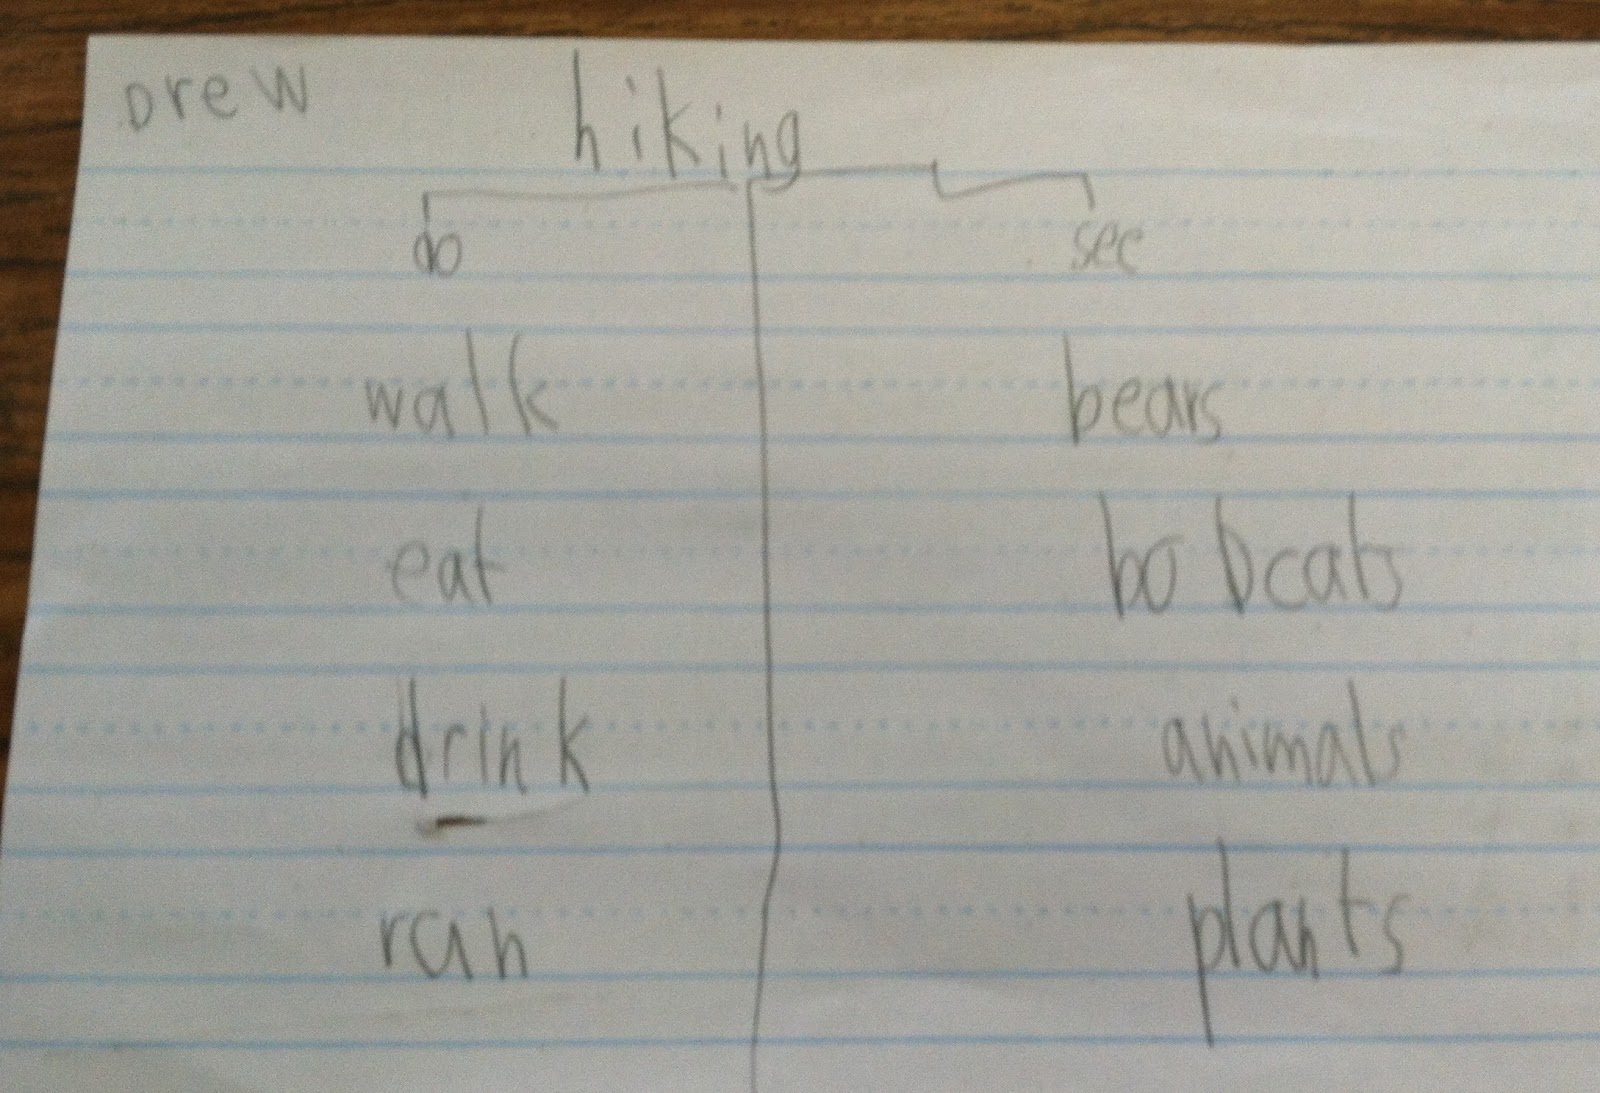 Drew hiking
do see
walk bears
eat bobcats
drink animals
ran plants